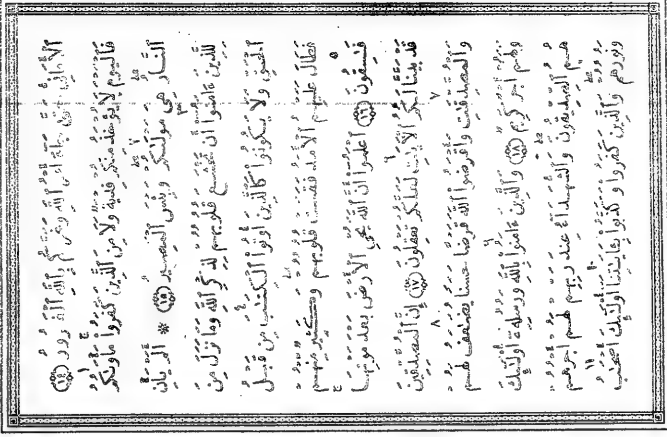 ٱلْأَمَانِيُّ حَتَّىٰ جَآءَ أَمْرُ ٱللَّهِ وَغَرَّكُم بِٱللَّهِ ٱلْغَرُورُ (١٤)
فَٱلْيَوْمَ لَا يُؤْخَذُ مِنكُمْ فِدْيَةٌ وَلَا مِنَ ٱلَّذِينَ كَفَرُوا۟ مَأْوَىٰكُمُ
ٱلنَّارُ هِىَ مَوْلَىٰكُمْ وَبِئْسَ ٱلْمَصِيرُ (١٥) * أَلَمْ يَأْنِ
لِلَّذِينَ ءَامَنُوٓا۟ أَن تَخْشَعَ قُلُوبُهُمْ لِذِكْرِ ٱللَّهِ وَمَا نَزَلَ مِنَ
ٱلْحَقِّ وَلَا يَكُونُوا۟ كَٱلَّذِينَ أُوتُوا۟ ٱلْكِتَٰبَ مِن قَبْلُ
فَطَالَ عَلَيْهِمُ ٱلْأَمَدُ فَقَسَتْ قُلُوبُهُمْ وَكَثِيرٌ مِّنْهُمْ
فَٰسِقُونَ (١٦) ٱعْلَمُوٓا۟ أَنَّ ٱللَّهَ يُحْىِ ٱلْأَرْضَ بَعْدَ مَوْتِهَا
قَدْ بَيَّنَّا لَكُمُ ٱلْءَايَٰتِ لَعَلَّكُمْ تَعْقِلُونَ (١٧) إِنَّ ٱلْمُصَّدِّقِينَ
وَٱلْمُصَّدِّقَٰتِ وَأَقْرَضُوا۟ ٱللَّهَ قَرْضًا حَسَنًا يُضَٰعَفُ لَهُمْ
وَلَهُمْ أَجْرٌ كَرِيمٌ (١٨) وَٱلَّذِينَ ءَامَنُوا۟ بِٱللَّهِ وَرُسُلِهِۦٓ أُو۟لَٰٓئِكَ
هُمُ ٱلصِّدِّيقُونَ وَٱلشُّهَدَآءُ عِندَ رَبِّهِمْ لَهُمْ أَجْرُهُمْ
وَنُورُهُمْ وَٱلَّذِينَ كَفَرُوا۟ وَكَذَّبُوا۟ بِـَٔايَٰتِنَآ أُو۟لَٰٓئِكَ أَصْحَٰبُ